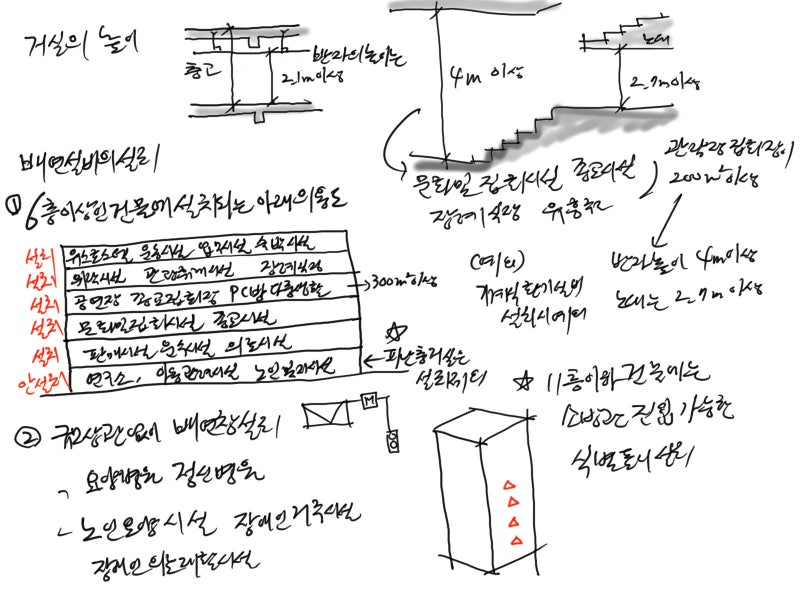 거실의 높이
층고
반자의 높이는
2.1m이상
4m 이상
노대
2.7m이상
문화및집회시설 종교시설
장례식장 위흥주점
관람장 집회장이
200㎡이상
반자높이 4m이상
노대는 2.7m이상
배연설비의설치
① 6층이상인건물에설치되는아래의용도
설치 운동시설 업무시설 숙박시설
설치 위락시설 관광휴게시설 장례식장
설치 공연장 종교집회장 PC방 다중생활
300㎡이상
설치 문화및집회시설 종교시설
설치 판매시설 운수시설 의료시설
안설치 연구소, 아동관련시설 노인복지시설
피난층거실은
설치예외
(예외)
기계식환기설비
설치시예외
② 규모상관없이 배연창설치
M
ㄱ 요양병원 정신병원
ㄴ 노인요양시설 장애인거주시설
장애인의료재활시설
☆ 11층이하 건물에는
소방관 진입 가능한
식별표시 설치